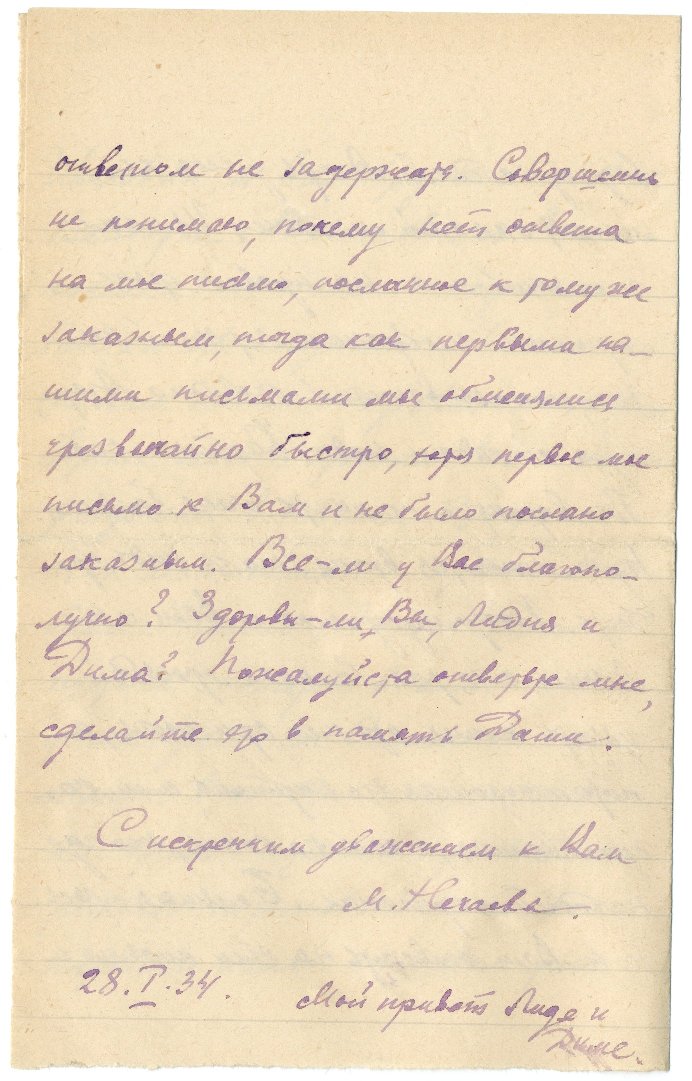 ответом не задержать. Совершенно
не понимаю, почему нет ответа
на мое письмо, посланное к тому же
заказным, тогда как первыми на-
шими письмами мы обменялись
чрезвычайно быстро, хотя первое мое
письмо к Вам и не было послано
заказным. Все-ли у Вас благопо-
лучно? Здоровы-ли, Вы, Лидия и
Дима? Пожалуйста ответьте мне,
сделайте это в память Даши.
С искренним уважением к Вам
М. Нечаева.
28.I.34.
Мой привет Лиде и
Диме.